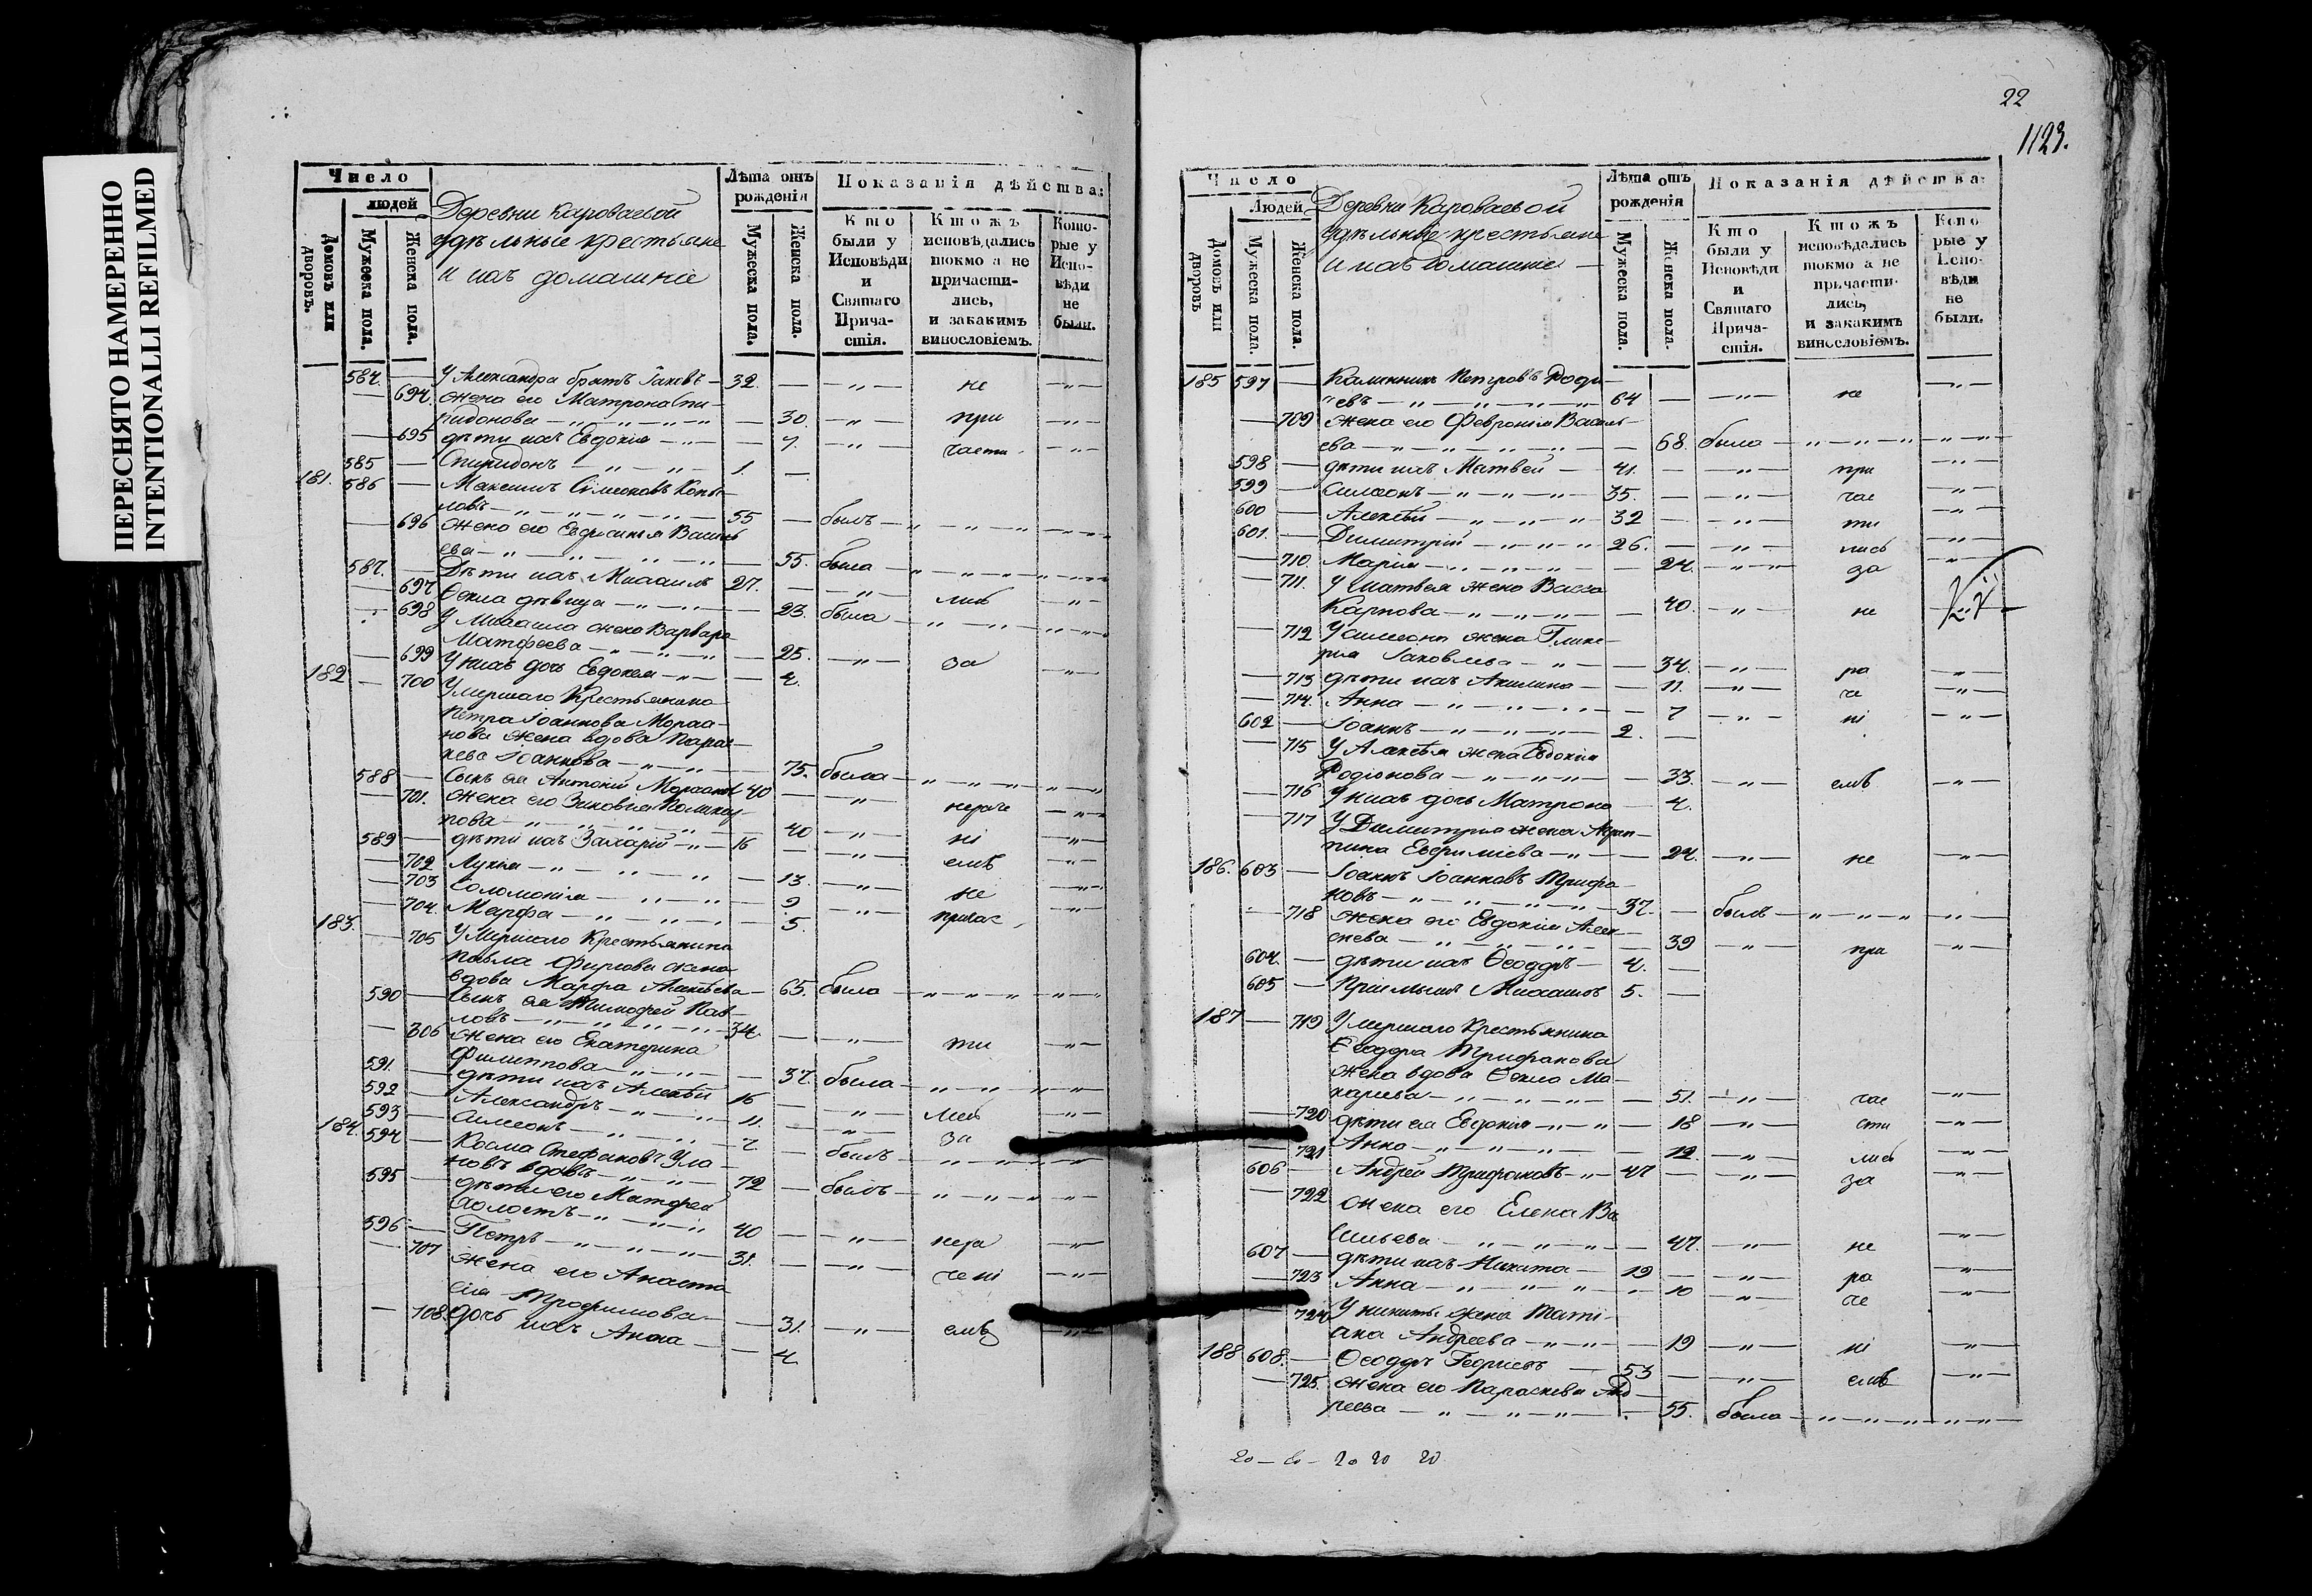 ПЕРЕСНЯТО НАМЕРЕННО
INTENTIONALLI REFILMED
Число
людей
Домовъ или дворовъ.
Мужеска пола.
Женска пола.
Деревни Кароваевой
удѣльные крестьяне
и ихъ домашніе
Лѣта отъ рожденія
Мужеска пола.
Женска пола.
Показанія дѣйства:
Кто были у Исповѣди и Святаго Причастія.
Ктожъ исповѣдались токмо а не причастились, и закакимъ винословіемъ.
Которые у Исповѣди не были.
584. — У Александра братъ Іаковъ — 32. — — „ — не — „ —
— 694. жена его Матрона Спи-
ридонова — „ — „ — „ — „ — 30. — „ — при — „ —
— 695 дѣти ихъ Евдокія — „ — — 7. — „ — части — „ —
585 — Спиридонъ — „ — „ — 1. —
181. 586 — Максимъ Симеоновъ Копы-
ловъ — „ — „ — „ — „ — 55 — былъ — „ — „ — „ — „ — „
— 696 жена его Евфросинья Василь
ева — „ — „ — „ — „ — 55. была — „ — „ — „ — „ — „
587. — Дѣти ихъ Михаилъ 27. — — „ — лись — „ —
— 697 Ѳекла дѣвица — „ — „ — 23. была — „ — „ — „ — „
698 У Михаила жена Варвара
Матфеева — „ — „ — „ — 25. — „ — за — „ —
— 699 У нихъ дочь Евдокея — „ — — 4.
182 — 700 Умершаго Крестьянина
Петра Іоаннова Морха-
нова жена вдова Парас-
кева Іоаннова — „ — „ — 75. была — „ — „ — „ — „ — „
588 — Сынъ ея Антоній Мораховъ 40 — — „ — нераче — „ —
— 701. жена его Зиновія Поликар-
пова — „ — „ — „ — „ — 40 — „ — ні — „ —
589 — дѣти ихъ Захарій — „ — 16 — — „ — емъ — „ —
— 702 Лукія — „ — „ — „ — 13. — „ — не — „ —
— 703 Соломонія — „ — „ — 9 — „ — причас — „ —
— 704. Марфа — „ — „ — „ — 5.
183. — 705 Умершаго Крестьянина
Павла Фирсова жена
вдова Марфа Алексѣева — 65. была — „ — „ — „ — „ — „
590 — Сынъ ея Тимофей Пав-
ловъ — „ — „ — „ — „ — 34. — — „ — ти — „ —
— 306 жена его Екатерина
Филиппова — „ — „ — 37. была — „ — „ — „ — „
591. — дѣти ихъ Алексѣй 16 — — „ — лись — „ —
592 — Александръ — „ — „ 11. — — „ — за
593 — Симеонъ — „ — „ — 7. — былъ — „ — „ — „ — „
184. 594 — Косма Стефановъ Ула-
новъ вдовъ — „ — „ — 72 — былъ — „ — „ — „ — „
595 — дѣти его Матфей
холостъ — „ — „ — „ 40 — — „ — нера — „ —
596 — Петръ — „ — „ — „ — „ 31. — — „ — чені — „ —
— 707 жена его Анаста
сія Трофимова — — 31. — „ — емъ — „ —
— 708. дочь ихъ Анна — — 4.
22
1123.
Число
Людей
Домовъ или дворовъ
Мужеска пола.
Женска пола.
Деревни Кароваевой
удѣльные крестьяне
и ихъ домашніе —
Лѣта отъ рожденія
Мужеска пола.
Женска пола.
Показанія дѣйства:
Кто были у Исповѣди и Святаго Причастія.
Ктожъ исповѣдались токмо а не причастились, и закакимъ винословіемъ.
Которые у Исповѣди не были.
185 597 — Калинникъ Петровъ Роди-
евъ — „ — „ — „ — „ 64 — — „ — не — „ —
— 709 жена его Февронія Василь-
ева — „ — „ — „ — „ — 68. была — „ — „ — „ — „ — „
598 — дѣти ихъ Матвей — 41. — — „ — при — „ —
599 — Симеонъ — „ — „ — „ 35. — — „ — час — „ —
600 — Алексѣй — „ — „ — „ 32 — — „ — ти — „ —
601. — Димитрій — „ — „ — „ 26. — — „ — лись — „ —
— 710. Марія — „ — „ — „ — 24. — „ — за — „ —
— 711. У Матвея жена Васса
Карпова — „ — „ — „ — 40. — „ — не
— 712 У Симеона жена Глике-
рия Іаковлева — „ — — 34. — „ — ра — „ —
— 713 дѣти ихъ Акилина — — 11. — „ — че — „ —
— 714. Анна — „ — „ — „ — 7 — „ — ні — „ —
602 — Іоаннъ — „ — „ — „ — 2. —
— 715 У Алексѣя жена Евдокія
Родіонова — „ — „ — „ — 33. — „ — емъ — „ —
— 716 У нихъ дочь Матрона — 4.
— 717 У Димитрія жена Агрип-
пина Евфиміева — „ — — 24. — „ — не — „ —
186. 603 — Іоаннъ Іоанновъ Трифа-
новъ — „ — „ — „ — „ 37. — былъ — „ — „ — „ — „ —
— 718 жена его Евдокія Алек-
сѣева — „ — „ — „ — 39 — „ — при — „ —
604. — дѣти ихъ Ѳеодоръ — 4. —
605 — Приемышъ Михаилъ 5. —
187 — 719 Умершаго Крестьянина
Ѳеодора Трифанова
жена вдова Ѳекла Ма-
карьева — „ — „ — „ — 51. — „ — час — „ —
— 720 дѣти ея Евдокія — „ — „ — 18 — „ — сти — „ —
— 721 Анна — „ — „ — „ — 12 — „ — лись — „ —
606 — Андрей Трифановъ — „ — 47 — — „ — за — „ —
— 722 жена его Елена Ва
сильева — „ — „ — „ — 47. — „ — не — „ —
607 — дѣти ихъ Никита — 19 — — „ — ра — „ —
— 723 Анна — „ — „ — „ — 10 — „ — че — „ —
724 У Никиты жена Тати-
ана Андреева — „ — „ — 19 — „ — ні — „ —
188 608. — Ѳеодоръ Георгіевъ — 53 — — „ — емъ — „ —
— 725. жена его Параскева Анд-
реева — „ — „ — „ — 55. была — „ — „ — „ — „ — „ —